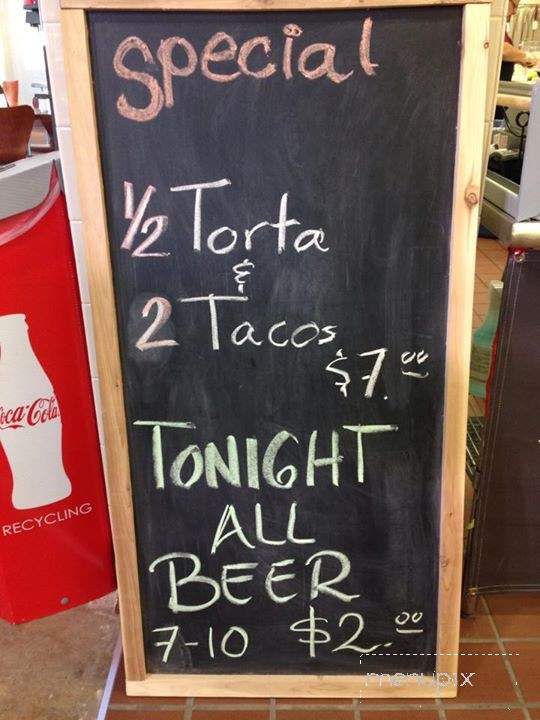 Special
1/2 Torta
&
2 Tacos
$7.00
TONIGHT
ALL
BEER
7-10 $2.00
Coca-Cola
RECYCLING
menupix